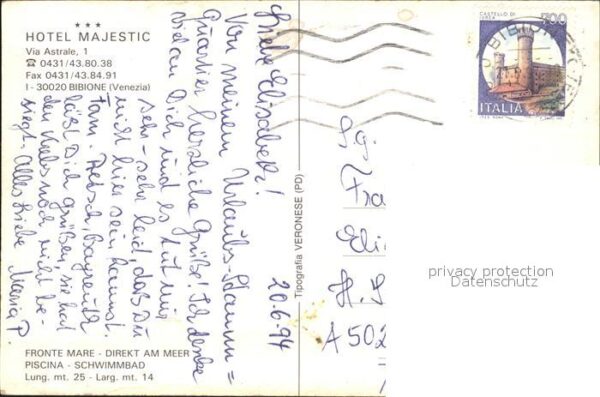 ★★★
HOTEL MAJESTIC
Via Astrale, 1
☎ 0431/43.80.38
Fax 0431/43.84.91
I - 30020 BIBIONE (Venezia)
20.6.94
Liebe Elisabeth!
Von meinem Urlaubs-Stamm=
quartier herzliche Grüße! Ich denke
viel an Dich und es tut mir
sehr-sehr leid, daß Du
nicht hier sein kannst.
Fam. Bayreuth
läßt Dich grüßen, sie hat
den Krebs noch nicht be-
siegt. Alles Liebe
Maria P.
FRONTE MARE - DIREKT AM MEER
PISCINA - SCHWIMMBAD
Lung. mt. 25 - Larg. mt. 14
Tipografia VERONESE (PD)
CASTELLO DI
IVREA
500
ITALIA
BIBIONE
Fra
Eli
H. S
A 502
privacy protection
Datenschutz